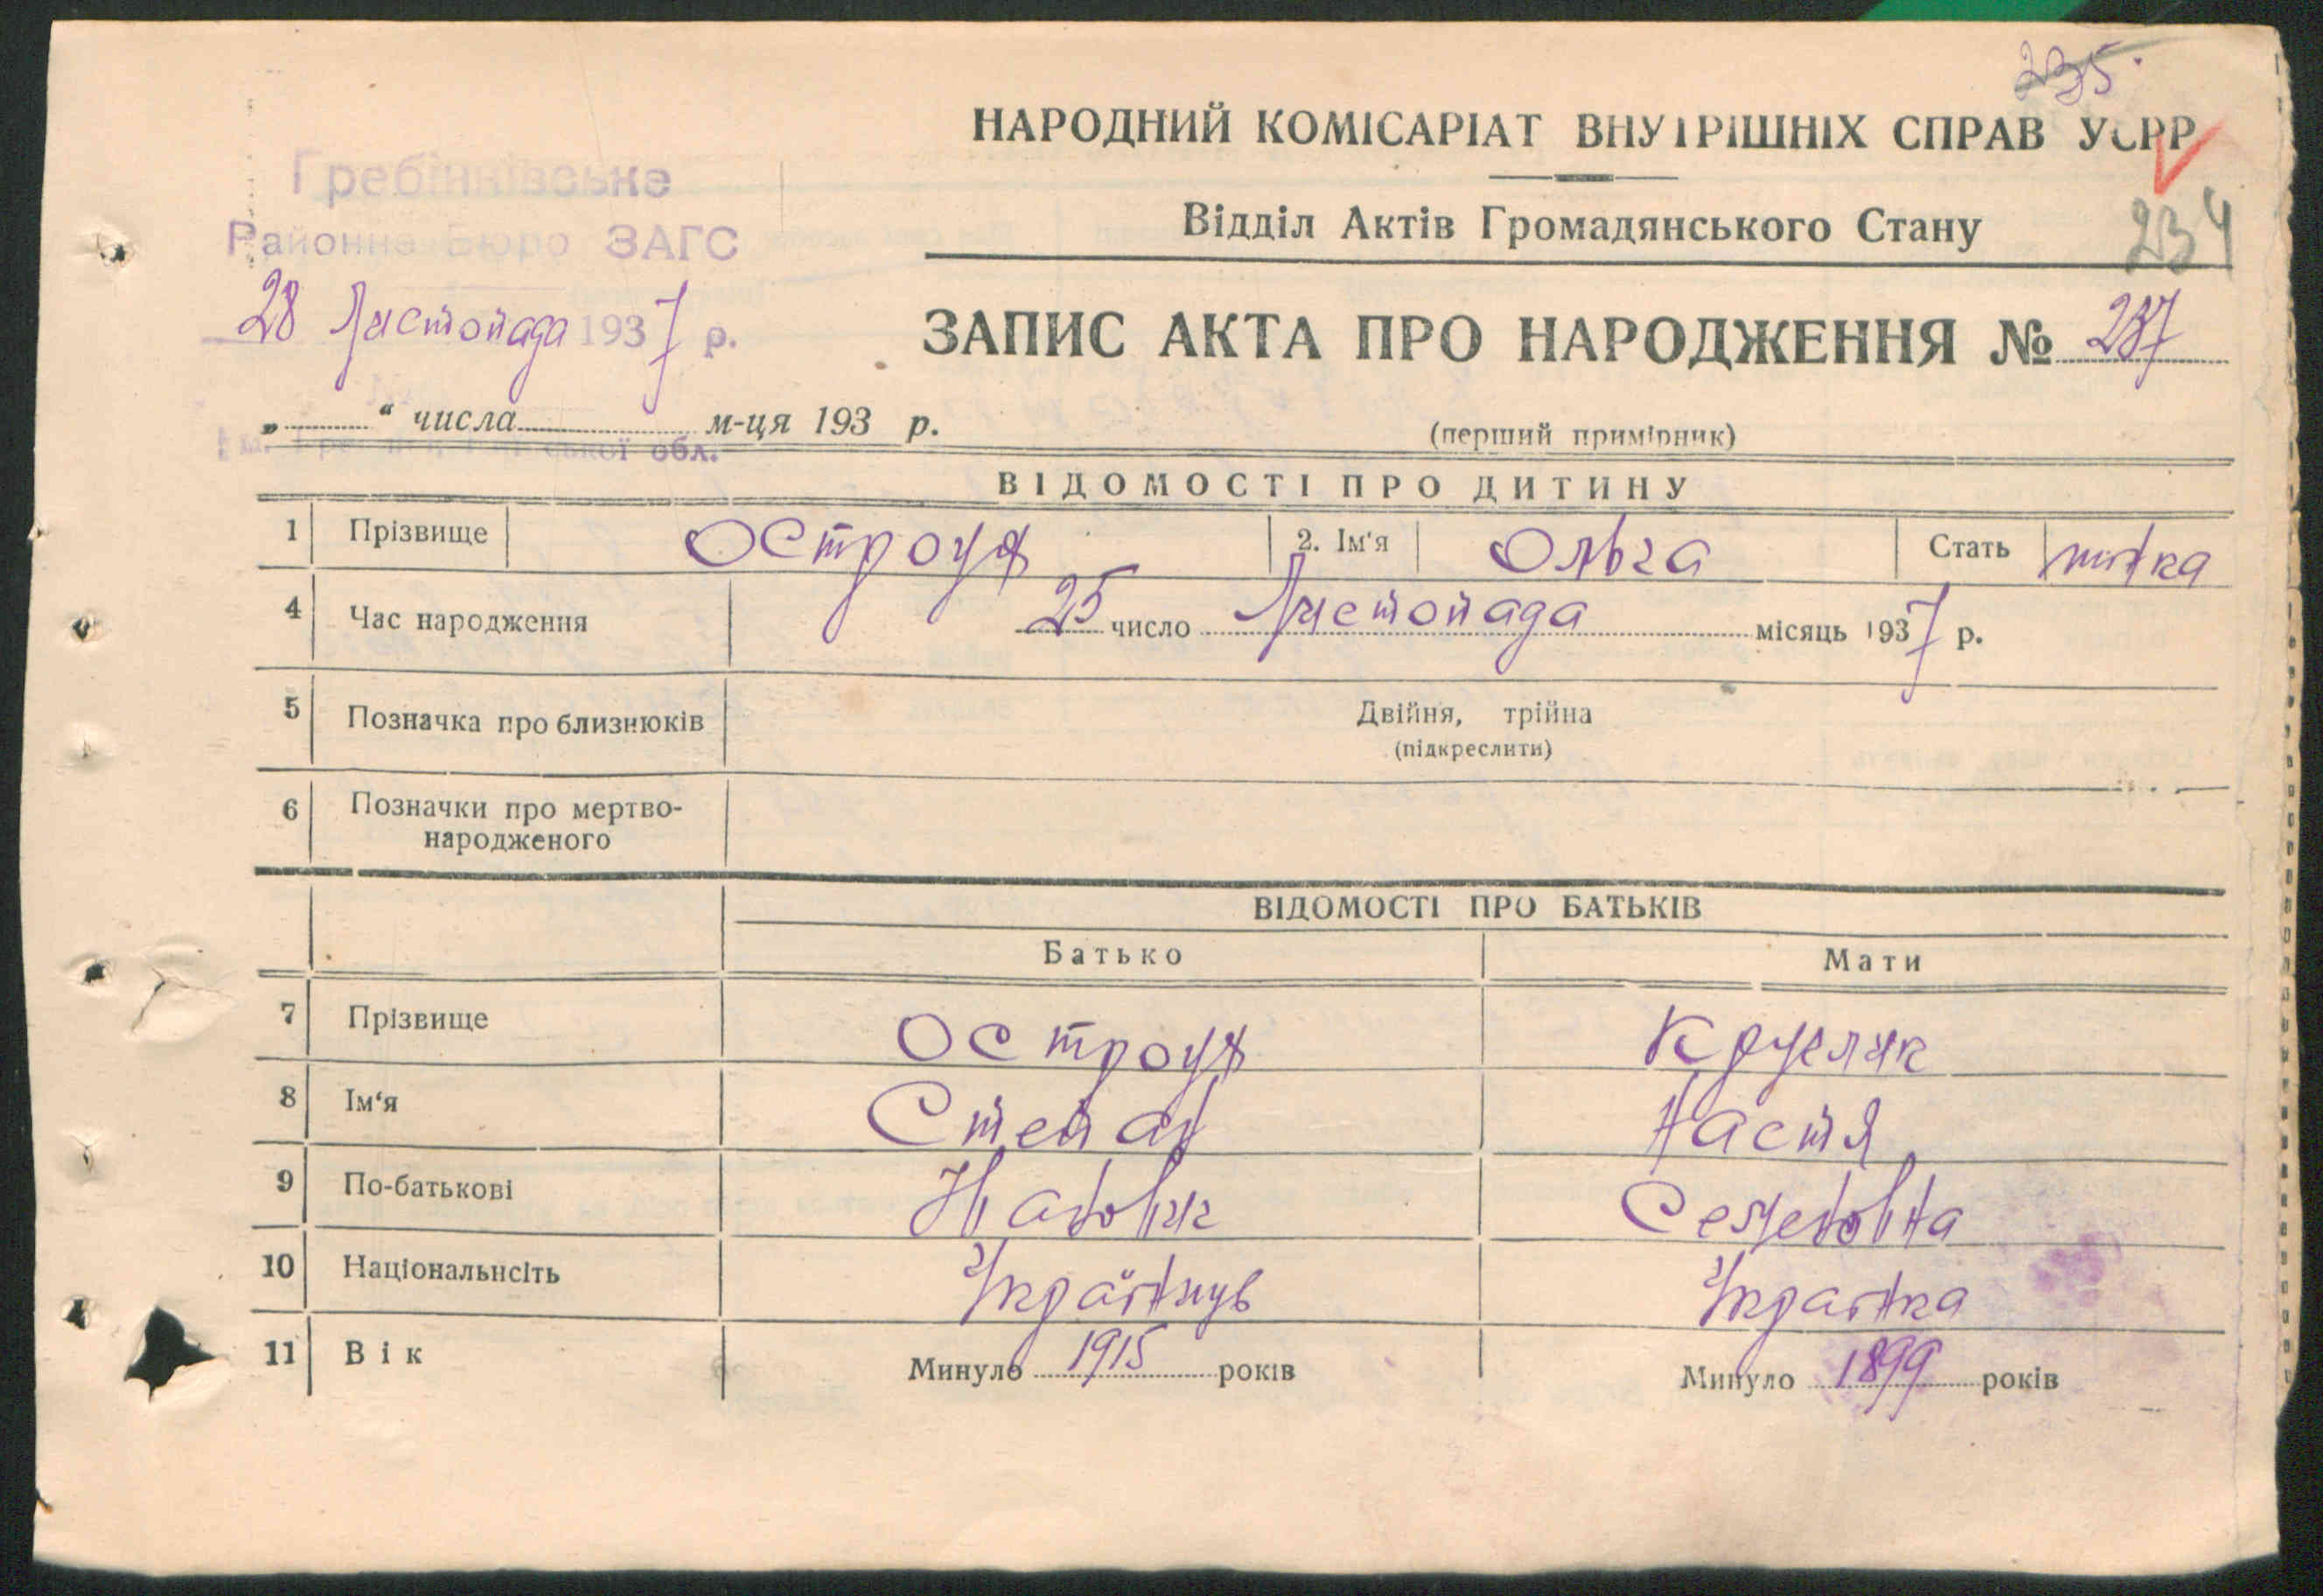 235
НАРОДНИЙ КОМІСАРІАТ ВНУТРІШНІХ СПРАВ УСРР
234
Відділ Актів Громадянського Стану
Гребінківське
Районне Бюро ЗАГС
28 Листопада 1937 р.
ЗАПИС АКТА ПРО НАРОДЖЕННЯ № 237
„ “ числа м-ця 193 р.
(перший примірник)
обл.
ВІДОМОСТІ ПРО ДИТИНУ
1 Прізвище Остроух 2. Ім'я Ольга Стать жінка
4 Час народження 25 число Листопада місяць 1937 р.
5 Позначка про близнюків Двійня, трійна
(підкреслити)
6 Позначки про мертво-
народженого
ВІДОМОСТІ ПРО БАТЬКІВ
Батько Мати
7 Прізвище Остроух Кругляк
8 Ім'я Степан Настя
9 По-батькові Семеновна
10 Національнсіть Українць Українка
11 Вік Минуло 1915 років Минуло 1899 років